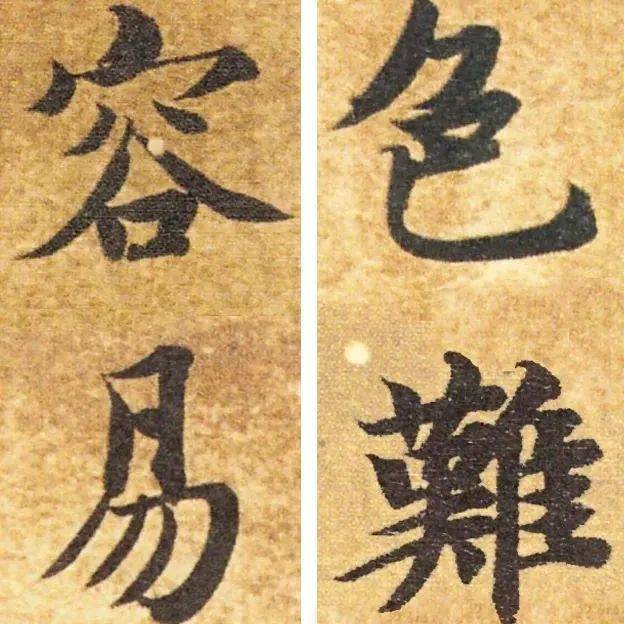 色難
容易